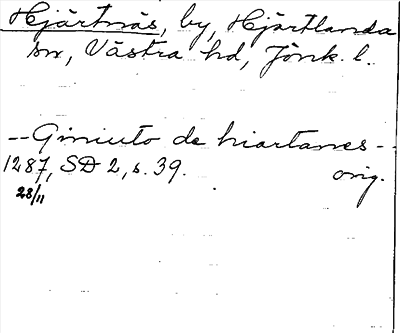 Hjärtnäs, by, Hjärtlanda
sn, Västra hd, Jönk. l.
-- Giniuto de hiartanes --
1287, SD 2, s. 39. orig.
28/11